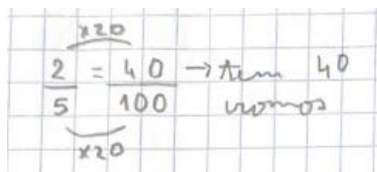 x20
2/5 = 40/100 → tem 40
cromos
x20